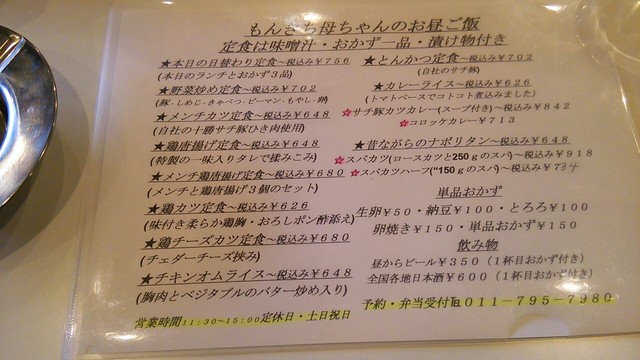 もんさち母ちゃんのお昼ご飯
定食は味噌汁・おかず一品・漬け物付き
★本日の日替わり定食~税込み¥756
(本日のランチとおかず3品)
★野菜炒め定食~税込み¥702
(豚・しめじ・きゃべつ・ピーマン・もやし・卵)
★メンチカツ定食~税込み¥648
(自社の十勝サチ豚ひき肉使用)
★鶏唐揚げ定食~税込み¥648
(特製の一味入りタレで揉みこみ)
★メンチ鶏唐揚げ定食~税込み¥680
(メンチと鶏唐揚げ3個のセット)
★鶏カツ定食~税込み¥626
(味付き柔らか鶏胸・おろしポン酢添え)
★鶏チーズカツ定食~税込み¥680
(チェダーチーズ挟み)
★チキンオムライス~税込み¥648
(胸肉とベジタブルのバター炒め入り)
営業時間11:30~15:00定休日・土日祝日
★とんかつ定食~税込み¥702
(自社のサチ豚)
★カレーライス~税込み¥626
(トマトベースでコトコト煮込みました)
☆サチ豚カツカレー(スープ付き)~税込み¥842
☆コロッケカレー~税込み¥713
★昔ながらのナポリタン~税込み¥648
☆スパカツ(ロースカツと250gのスパ)~税込み¥918
☆スパカツハーフ(〃150gのスパ)~税込み¥734
単品おかず
生卵¥50・納豆¥100・とろろ¥100
卵焼き¥150・単品おかず¥150
飲み物
昼からビール¥350(1杯目おかず付き)
全国各地日本酒¥600(1杯目おかず付き)
予約・弁当受付℡011-795-7980